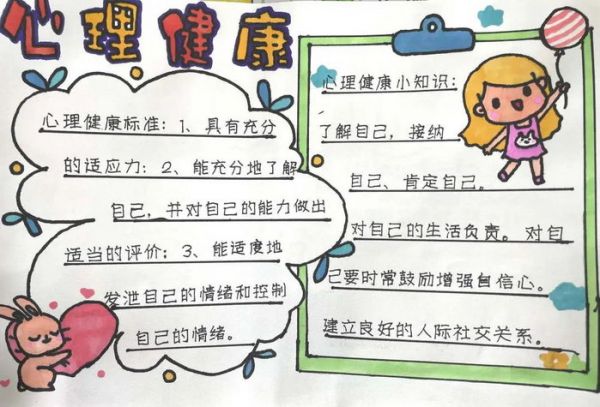 心理健康
心理健康标准：1、具有充分
的适应力；2、能充分地了解
自己，并对自己的能力做出
适当的评价；3、能适度地
发泄自己的情绪和控制
自己的情绪。
心理健康小知识：
了解自己，接纳
自己、肯定自己。
对自己的生活负责。对自
己要时常鼓励增强自信心。
建立良好的人际社交关系。